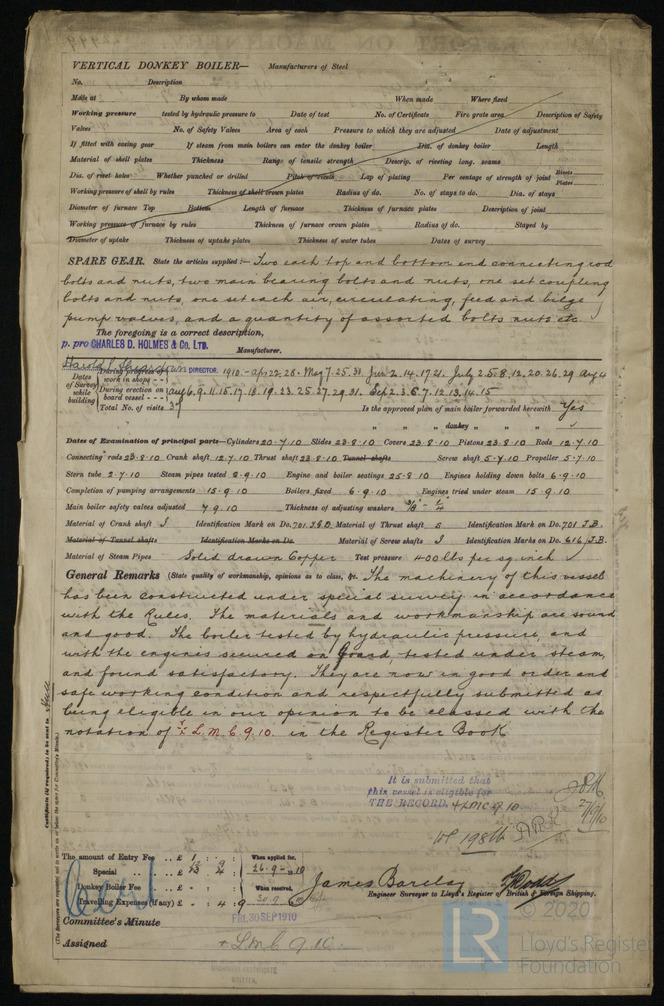 VERTICAL DONKEY BOILER— Manufacturers of Steel
No. Description
Made at By whom made When made Where fixed
Working pressure tested by hydraulic pressure to Date of test No. of Certificate Fire grate area Description of Safety
Valves No. of Safety Valves Area of each Pressure to which they are adjusted Date of adjustment
If fitted with easing gear If steam from main boilers can enter the donkey boiler Dia. of donkey boiler Length
Material of shell plates Thickness Range of tensile strength Descrip. of riveting long. seams
Dia. of rivet holes Whether punched or drilled Pitch of rivets Lap of plating Per centage of strength of joint Rivets Plates
Working pressure of shell by rules Thickness of shell crown plates Radius of do. No. of stays to do. Dia. of stays
Diameter of furnace Top Bottom Length of furnace Thickness of furnace plates Description of joint
Working pressure of furnace by rules Thickness of furnace crown plates Radius of do. Stayed by
Diameter of uptake Thickness of uptake plates Thickness of water tubes Dates of survey
SPARE GEAR. State the articles supplied:— Two each top and bottom end connecting rod
bolts and nuts, two main bearing bolts and nuts, one set coupling
bolts and nuts, one set each air, circulating, feed and bilge
pump valves, and a quantity of assorted bolts nuts etc.
The foregoing is a correct description,
p. pro CHARLES D. HOLMES & Co. LTD. Manufacturer.
DIRECTOR.
Dates of Survey while building
During progress of work in shops - - 1910. - Apr 22. 28. May 7. 25. 31. Jun 2. 14. 17. 21. July 2. 5. 8. 12. 20. 26. 29 Aug 4
During erection on board vessel - - - Aug 6. 9. 11. 15. 17. 18. 19. 23. 25. 27. 29. 31. Sep 2. 3. 6. 7. 12. 13. 14. 15
Total No. of visits 37 Is the approved plan of main boiler forwarded herewith Yes
" " " donkey " " "
Dates of Examination of principal parts—Cylinders 20.7.10 Slides 23.8.10 Covers 23.8.10 Pistons 23.8.10 Rods 12.7.10
Connecting rods 23.8.10 Crank shaft 12.7.10 Thrust shaft 23.8.10 Tunnel shafts Screw shaft 5.7.10 Propeller 5.7.10
Stern tube 2.7.10 Steam pipes tested 2.9.10 Engine and boiler seatings 25.8.10 Engines holding down bolts 6.9.10
Completion of pumping arrangements 15.9.10 Boilers fixed 6.9.10 Engines tried under steam 15.9.10
Main boiler safety valves adjusted 7.9.10 Thickness of adjusting washers 3/8 - 1/4
Material of Crank shaft S Identification Mark on Do. 701 J.B. Material of Thrust shaft S Identification Mark on Do. 701 J.B.
Material of Tunnel shafts Identification Marks on Do. Material of Screw shafts Identification Marks on Do. 616 J.B.
Material of Steam Pipes Solid drawn Copper Test pressure 400 lbs per sq inch
General Remarks (State quality of workmanship, opinions as to class, &c. The machinery of this vessel
has been constructed under special survey in accordance
with the Rules. The materials and workmanship are sound
and good. The boiler tested by hydraulic pressure, and
with the engines secured on board, tested under steam,
and found satisfactory. They are now in good order and
safe working condition and respectfully submitted as
being eligible in our opinion to be classed with the
notation of + L.M.C. 9.10. in the Register Book
Certificate (if required) to be sent to Hull
(The Surveyors are requested not to write on or below the space for Committee's Minute.)
It is submitted that
this vessel is eligible for
THE RECORD. + LMC 9.10
27/9/10
WP 198 lb
The amount of Entry Fee .. £ 1 : - : When applied for,
Special .. £ 26.9.10
Donkey Boiler Fee .. £ - : When received,
Travelling Expenses (if any) £ - : 4 : 9 30.9.10
James Barclay
Engineer Surveyor to Lloyd's Register of British & Foreign Shipping.
Committee's Minute FRI. 30 SEP 1910
Assigned + L.M.C. 9.10.
© 2020
LR
Lloyd's Register
Foundation